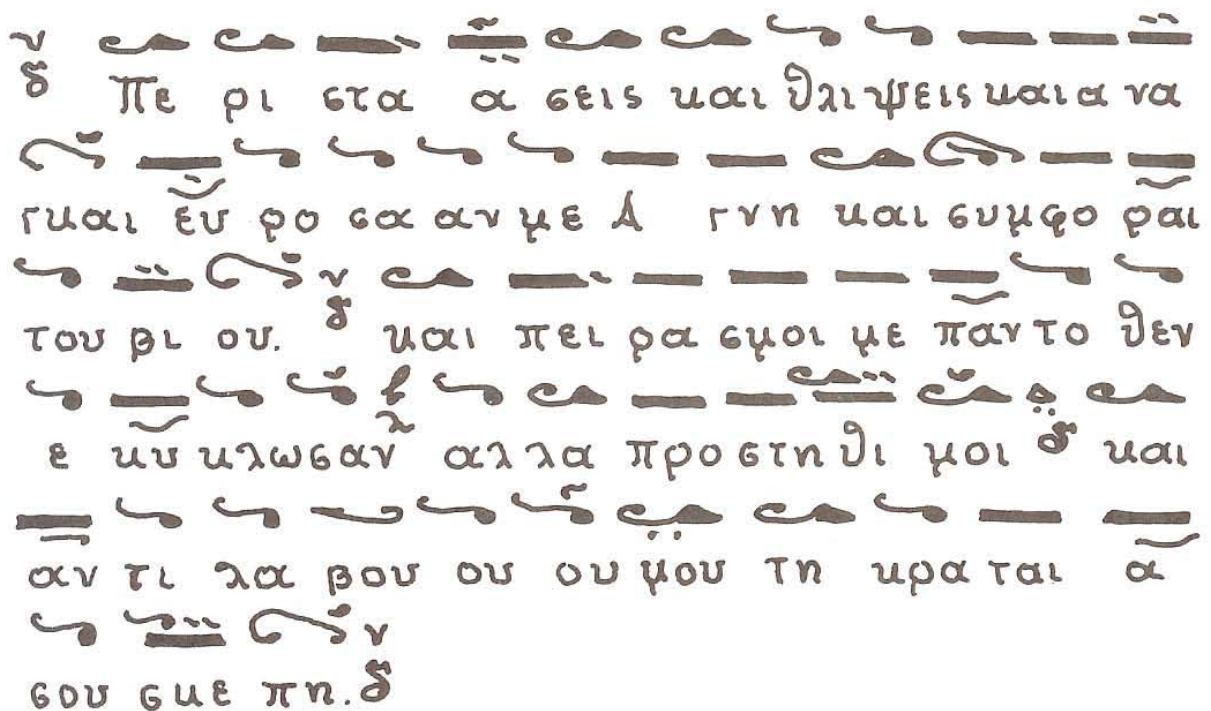 Πε ρι στα α σεις και θλι ψεις και α να
γκαι ευ ρο σα αν με Α γνη και συμφο ραι
του βι ου. και πει ρα σμοι με παν το θεν
ε κυ κλωσαν αλ λα προ στη θι μοι και
αν τι λα βου ου ου μου τη κρα ται α
σου σκε πη.